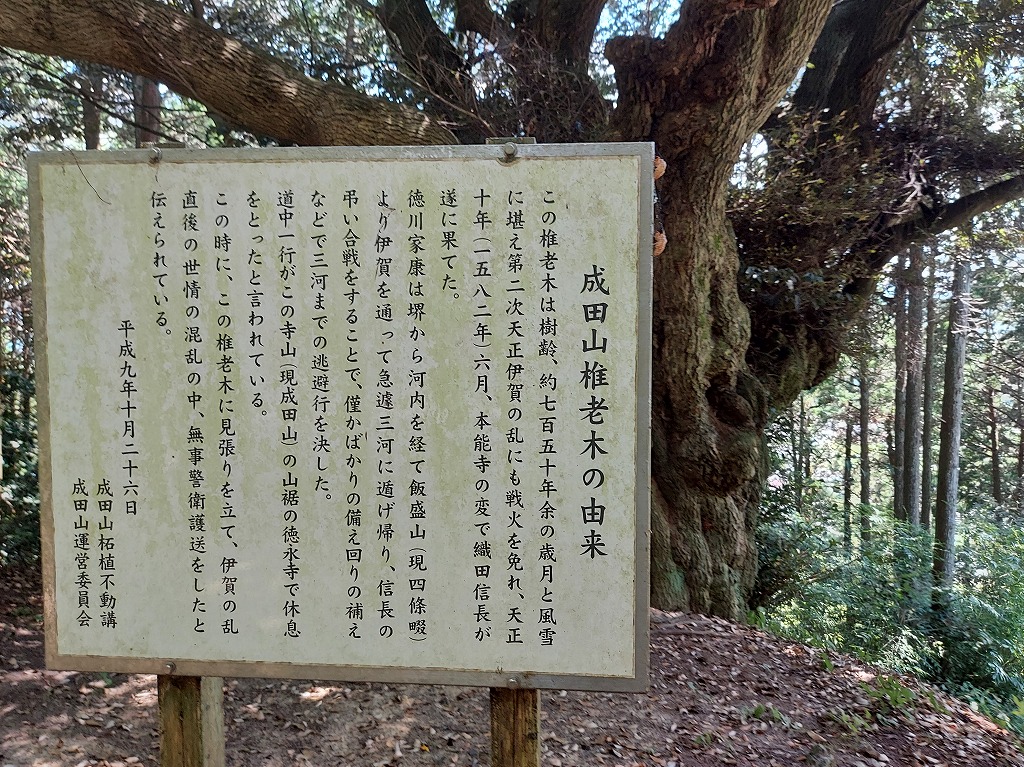 成田山椎老木の由来
この椎老木は樹齢、約七百五十年余の歳月と風雪
に堪え第二次天正伊賀の乱にも戦火を免れ、天正
十年(一五八二年)六月、本能寺の変で織田信長が
遂に果てた。
徳川家康は堺から河内を経て飯盛山(現四條畷)
より伊賀を通って急遽三河に遁げ帰り、信長の
弔い合戦をすることで、僅かばかりの備え回りの補え
などで三河までの逃避行を決した。
道中一行がこの寺山(現成田山)の山裾の徳永寺で休息
をとったと言われている。
この時に、この椎老木に見張りを立て、伊賀の乱
直後の世情の混乱の中、無事警衛護送をしたと
伝えられている。
平成九年十月二十六日
成田山柘植不動講
成田山運営委員会